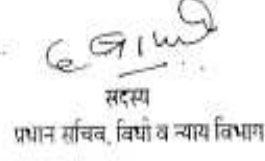 सदस्य
प्रधान सचिव, विधी व न्याय विभाग